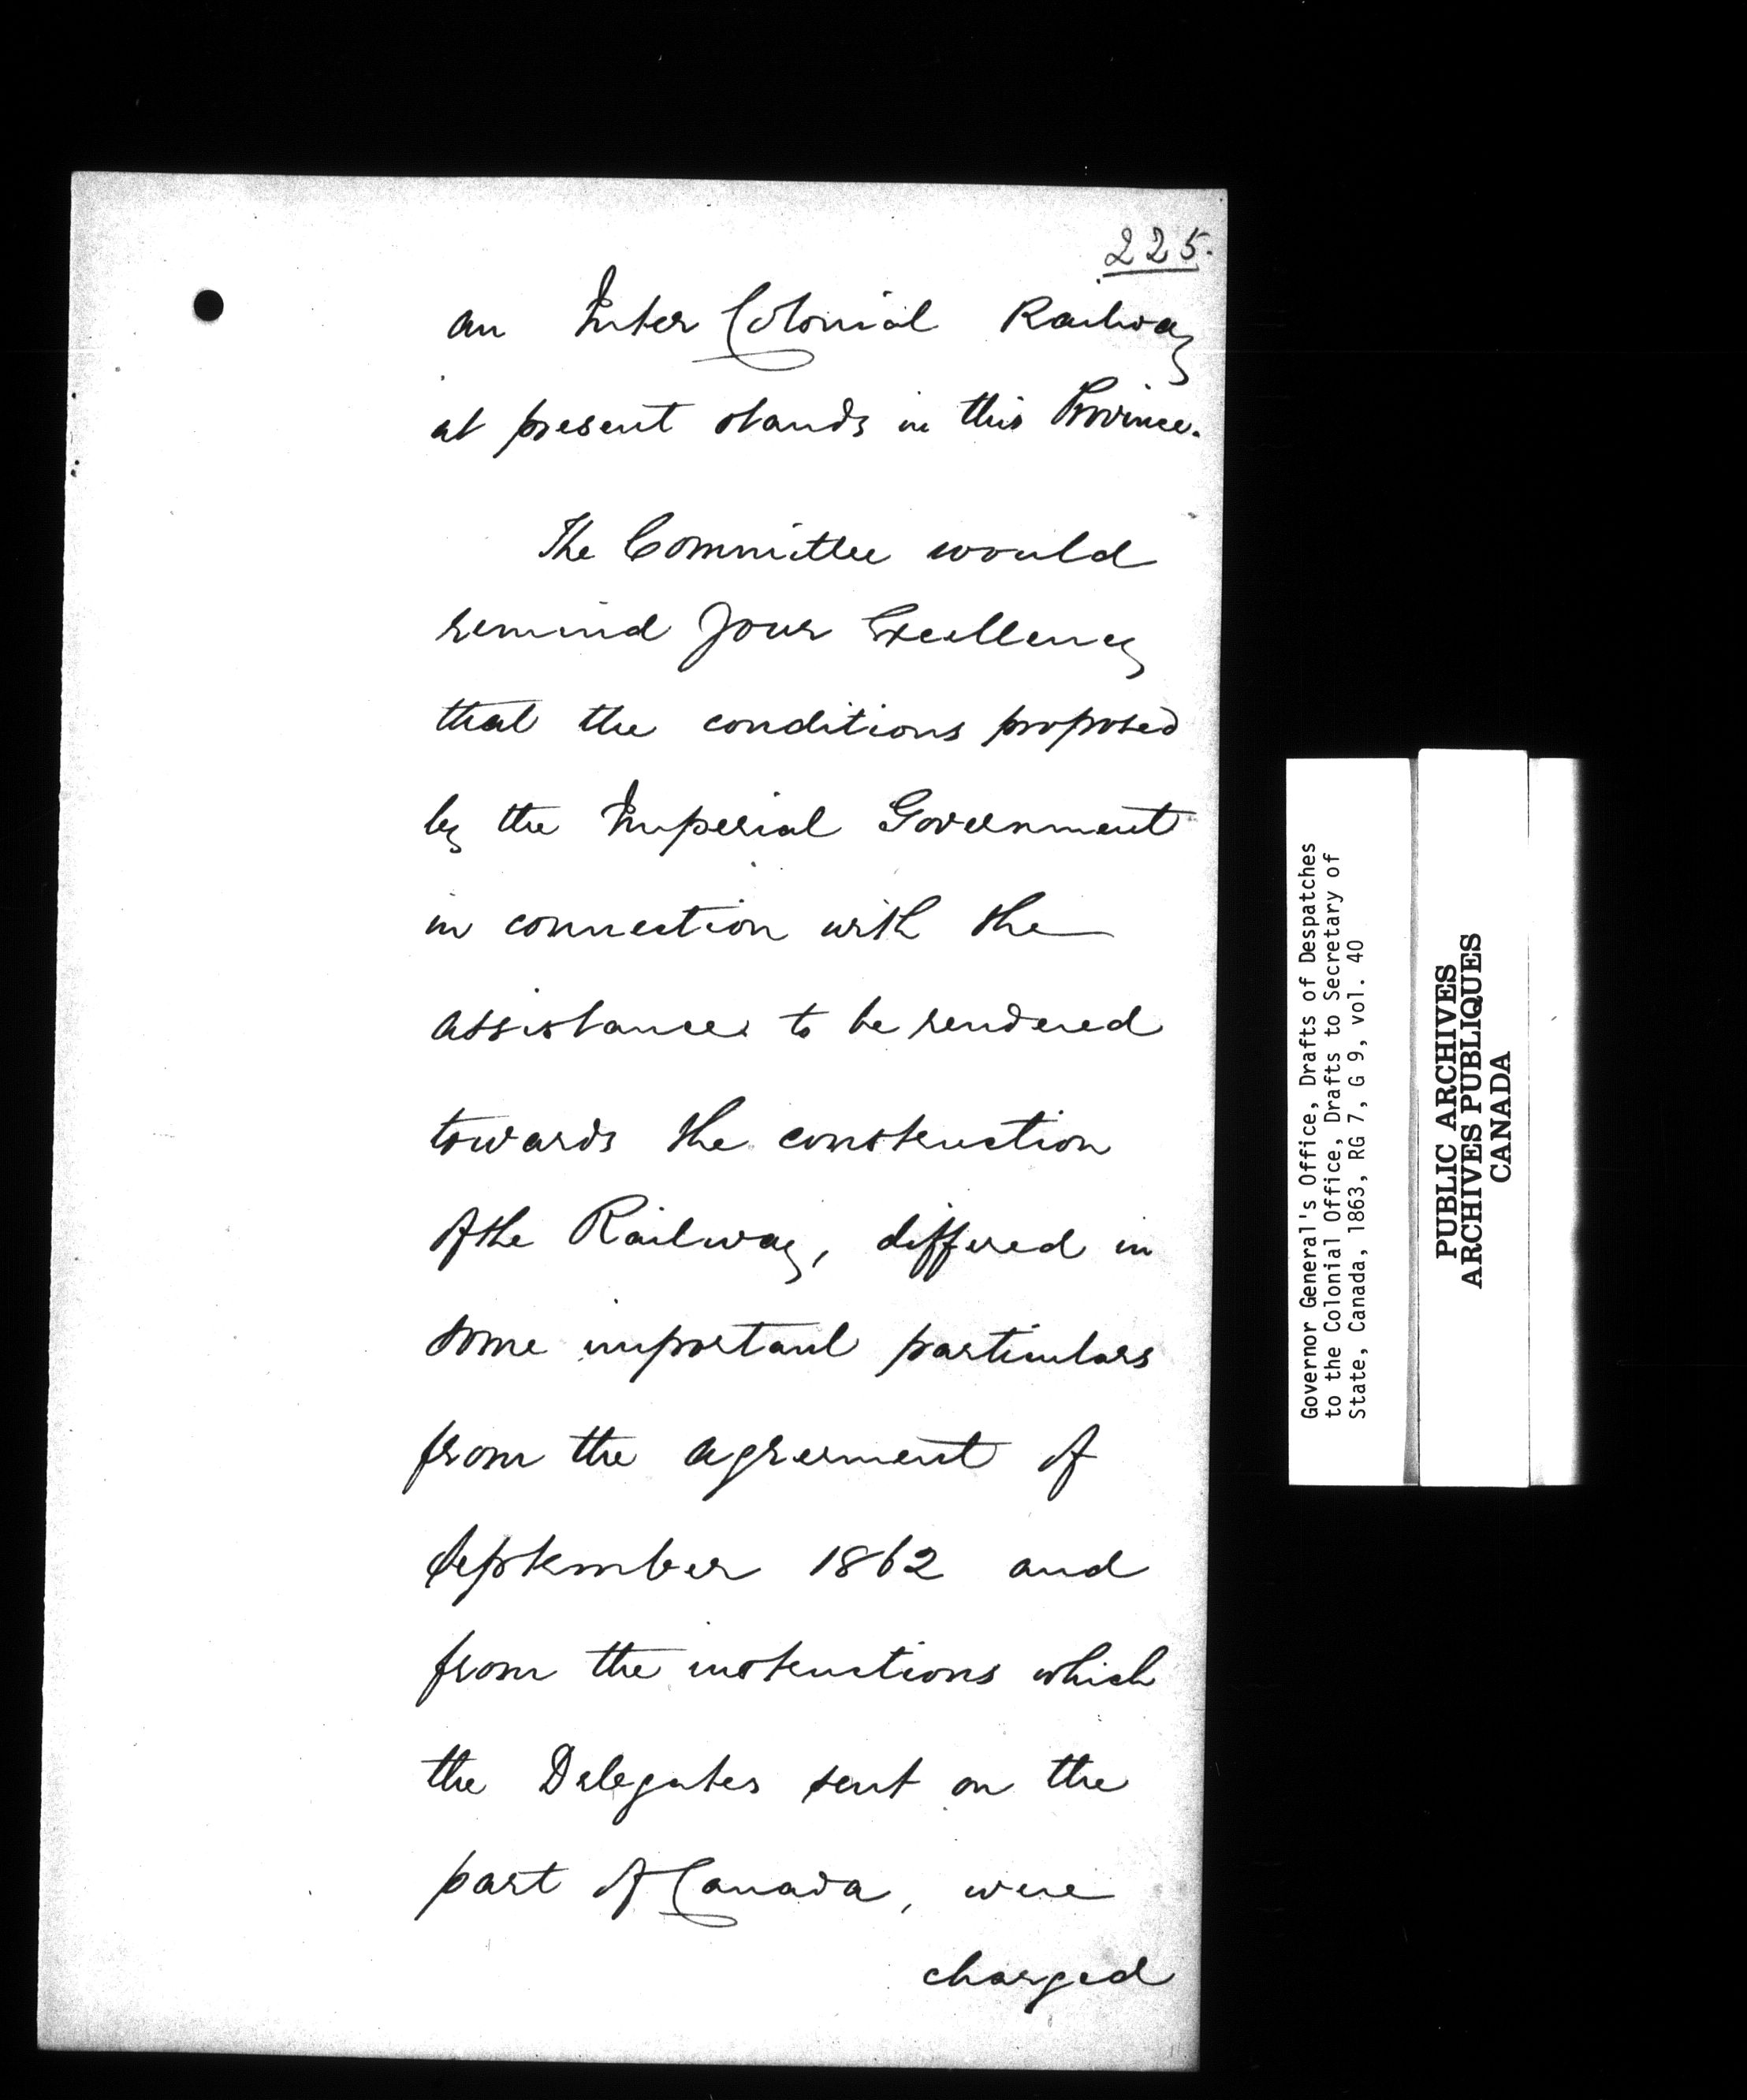 225.
an Inter Colonial Railway
at present stands in this Province.
The Committee would
remind Your Excellency
that the conditions proposed
by the Imperial Government
in connection with the
assistance to be rendered
towards the construction
of the Railway, differed in
some important particulars
from the agreement of
September 1862 and
from the instructions which
the Delegates sent on the
part of Canada, were
charged
Governor General's Office, Drafts of Despatches
to the Colonial Office, Drafts to Secretary of
State, Canada, 1863, RG 7, G 9, vol. 40
PUBLIC ARCHIVES
ARCHIVES PUBLIQUES
CANADA